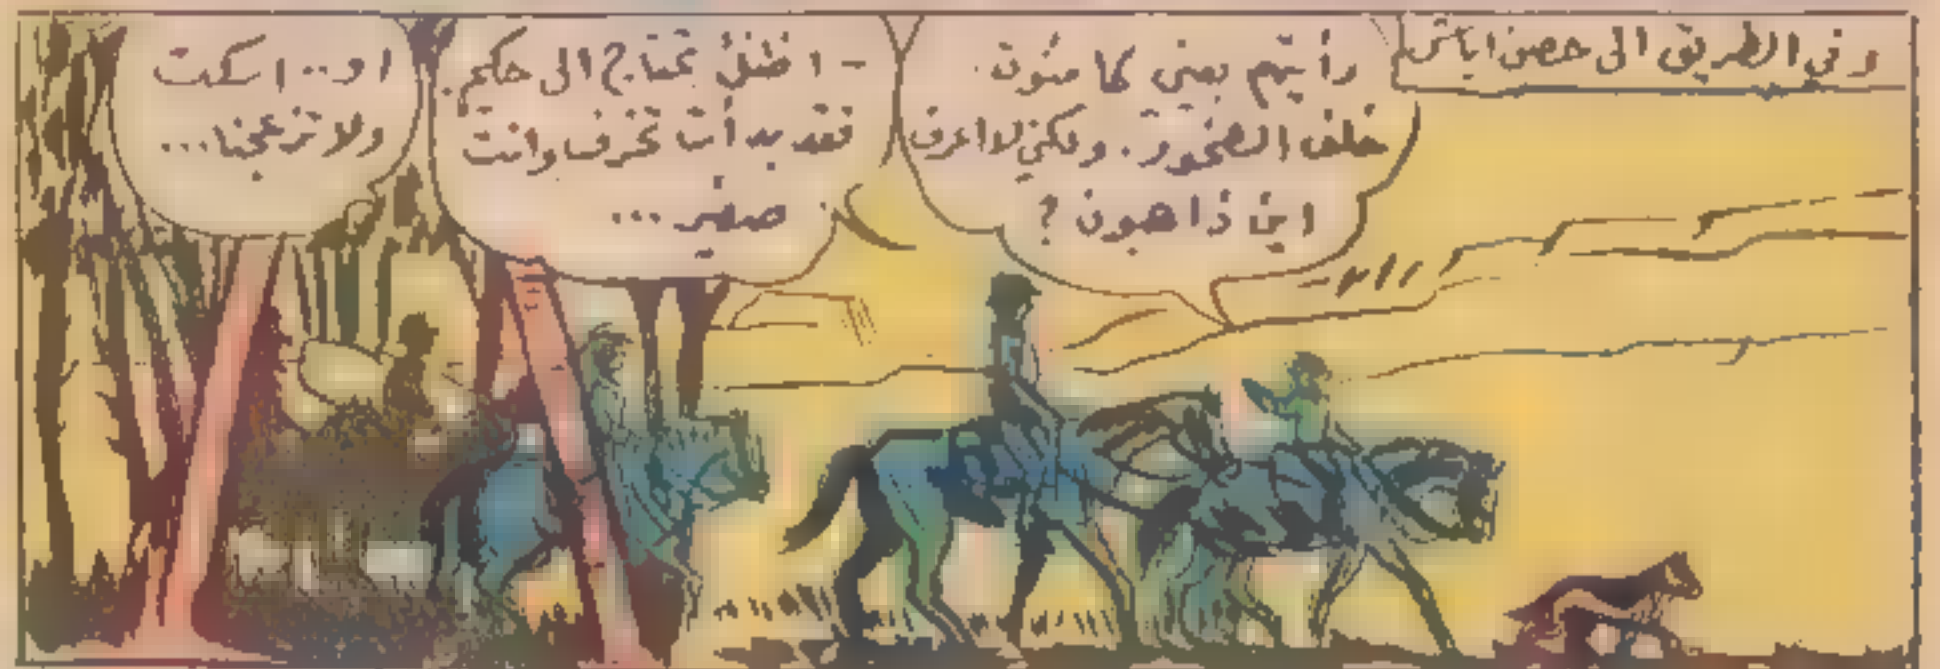 وفي الطريق الى حصن اباتش
رأيتهم بعيني كما مئوت
خلف الصخور. ولكني لا اعرف
اين ذاهبون ?
- اظنك تحتاج الى حكيم.
فقد بدأت تخرف وانت
صغير...
او.. اسكت
ولا تزعجنا...